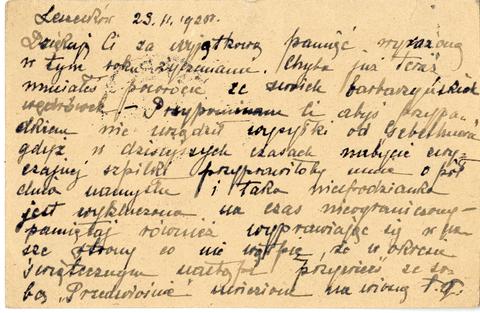 23. II. 1920r.
Dziękuję Ci za wyjątkową pamięć wyrażoną
w tym roku życzeniami. Chyba już teraz
miałeś powrócić ze swoich barbarzyńskich
wędrówek – Przypominam Ci abyś przypa-
dkiem nie urządził wysyłki od Gebethnera
gdyż w dzisiejszych czasach nabycie zwy-
czajnej szpilki przyprawiłoby mnie o pół
dnia namysłu i taka niespodzianka
jest wykluczona na czas nieograniczony –
pamiętaj również wyprawiając się w na-
sze strony co nie wątpię, że w okresie
świątecznym nastąpi przywieź ze so-
bą „Przedwiośnie"